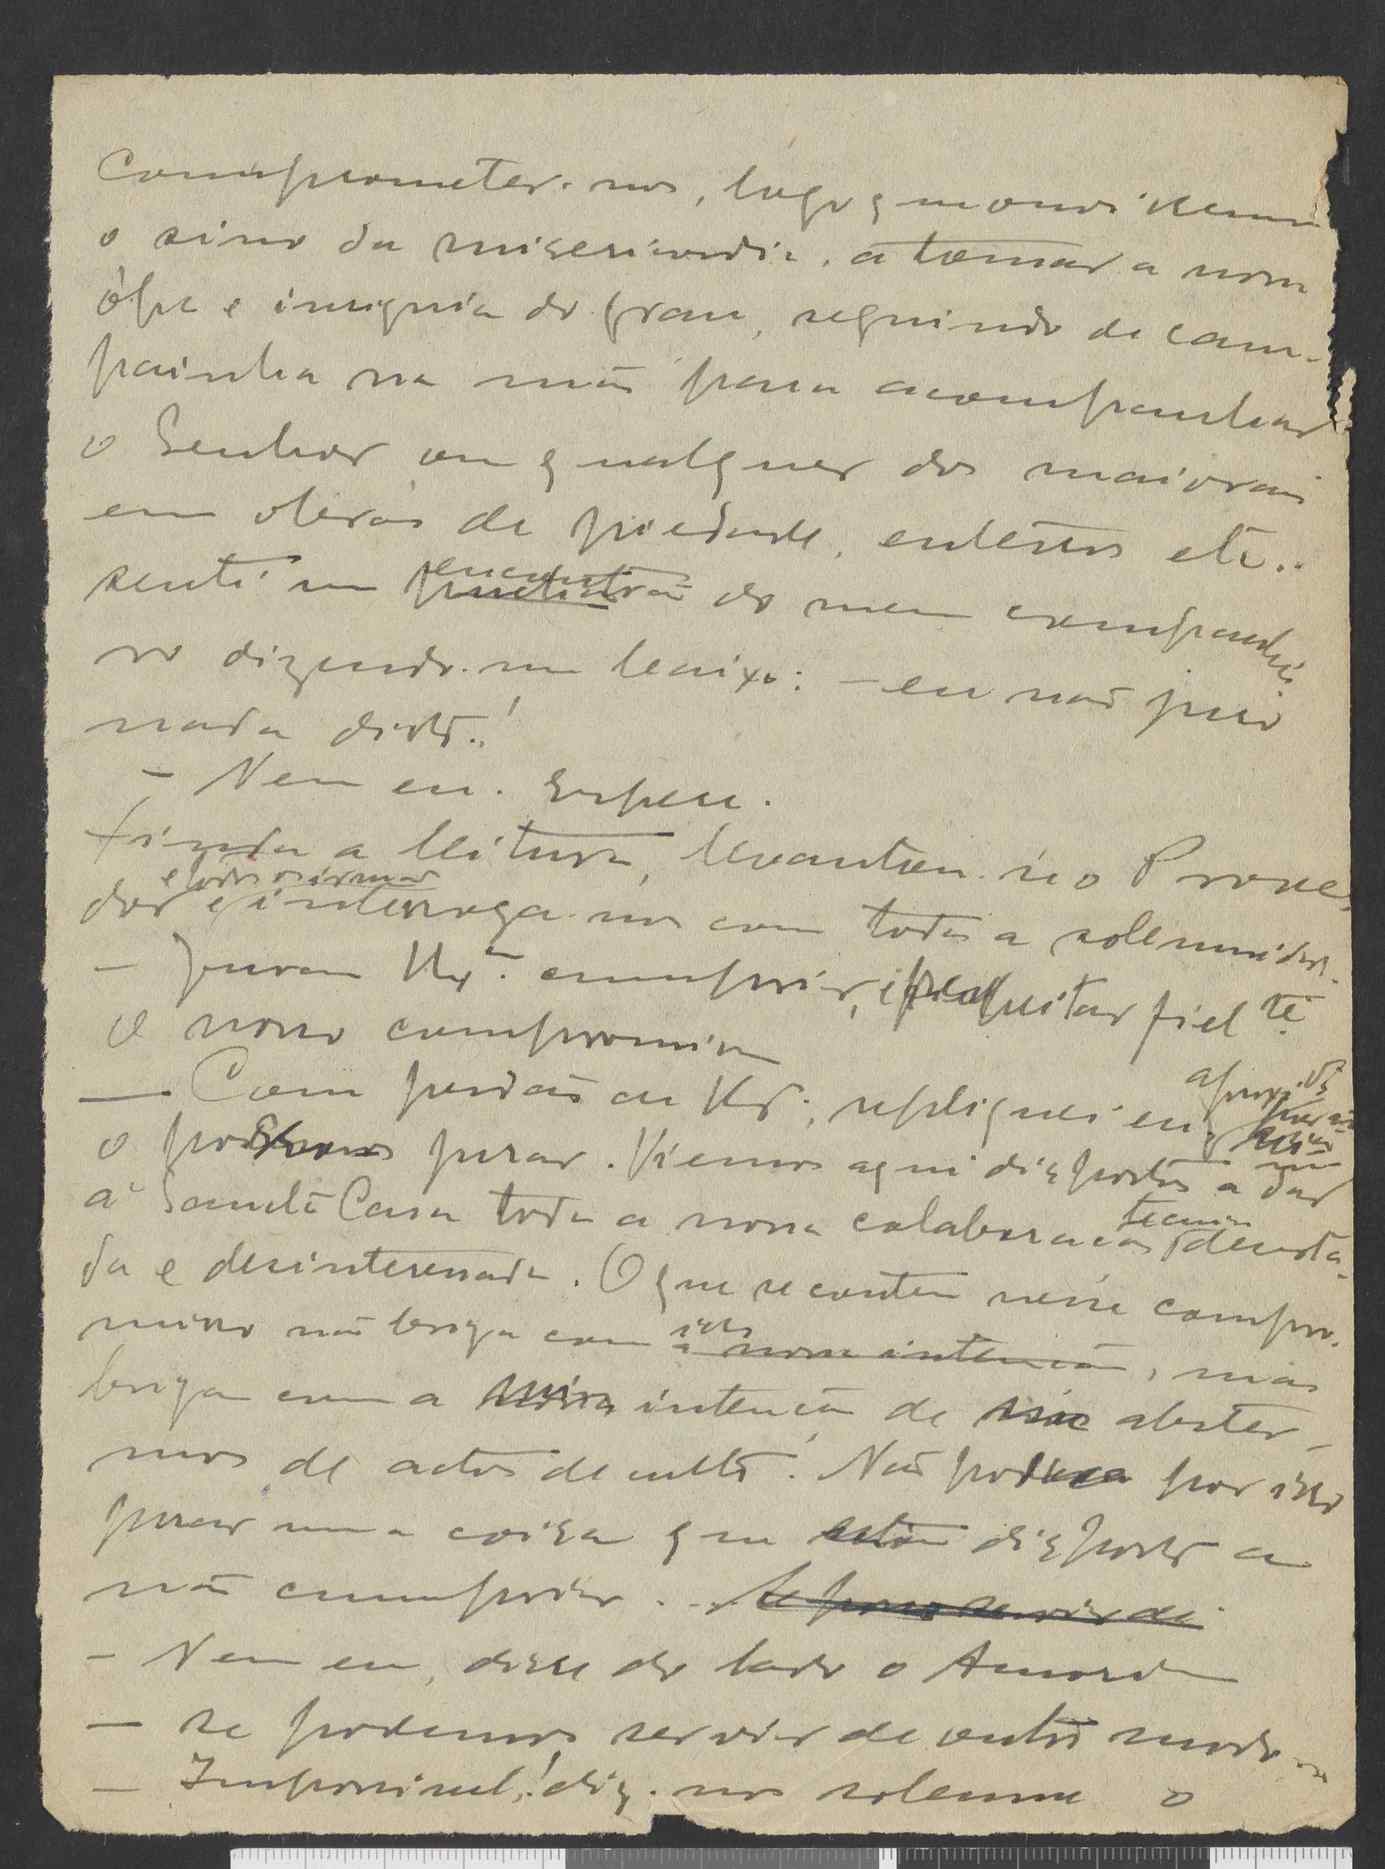 comprometer-nos, logo q nionos
o sino da misericordia, a tomar a nossa
ópa e insignia do grau, seguindo de cam-
painha na mão para acompanhar
o Senhor ou qualquer dos maiorais
em obras de piedade, enterros etc..
senti um encontrão do meu companhei-
ro dizendo-me baixo: - eu não juro
nada disto!
- Nem eu. Espere.
finda a leitura, levantou-se o Prove-
e todos os irmãos
dor e interroga-nos com toda a solemnidade.
- Juram V.Exas cumprir, e respeitar fielte
o nosso compromisso
- Com perdão de V.Exa, repliquei eu,
o podemos jurar. Viemos aqui dispostos a dar
á Santa Casa toda a nossa colaboração devota-
da e desinteressada. O que se contem nesse compro-
misso não briga com a nossa intenção, mas
briga com a minha intenção de abster-
mos de actos de culto. Não posso por isso
jurar uma coisa que estou disposto a
não cumprir...
- Nem eu, disse do lado o Amorim
- Se podemos servir de outro modo...
- Impossivel! diz-nos solemne o